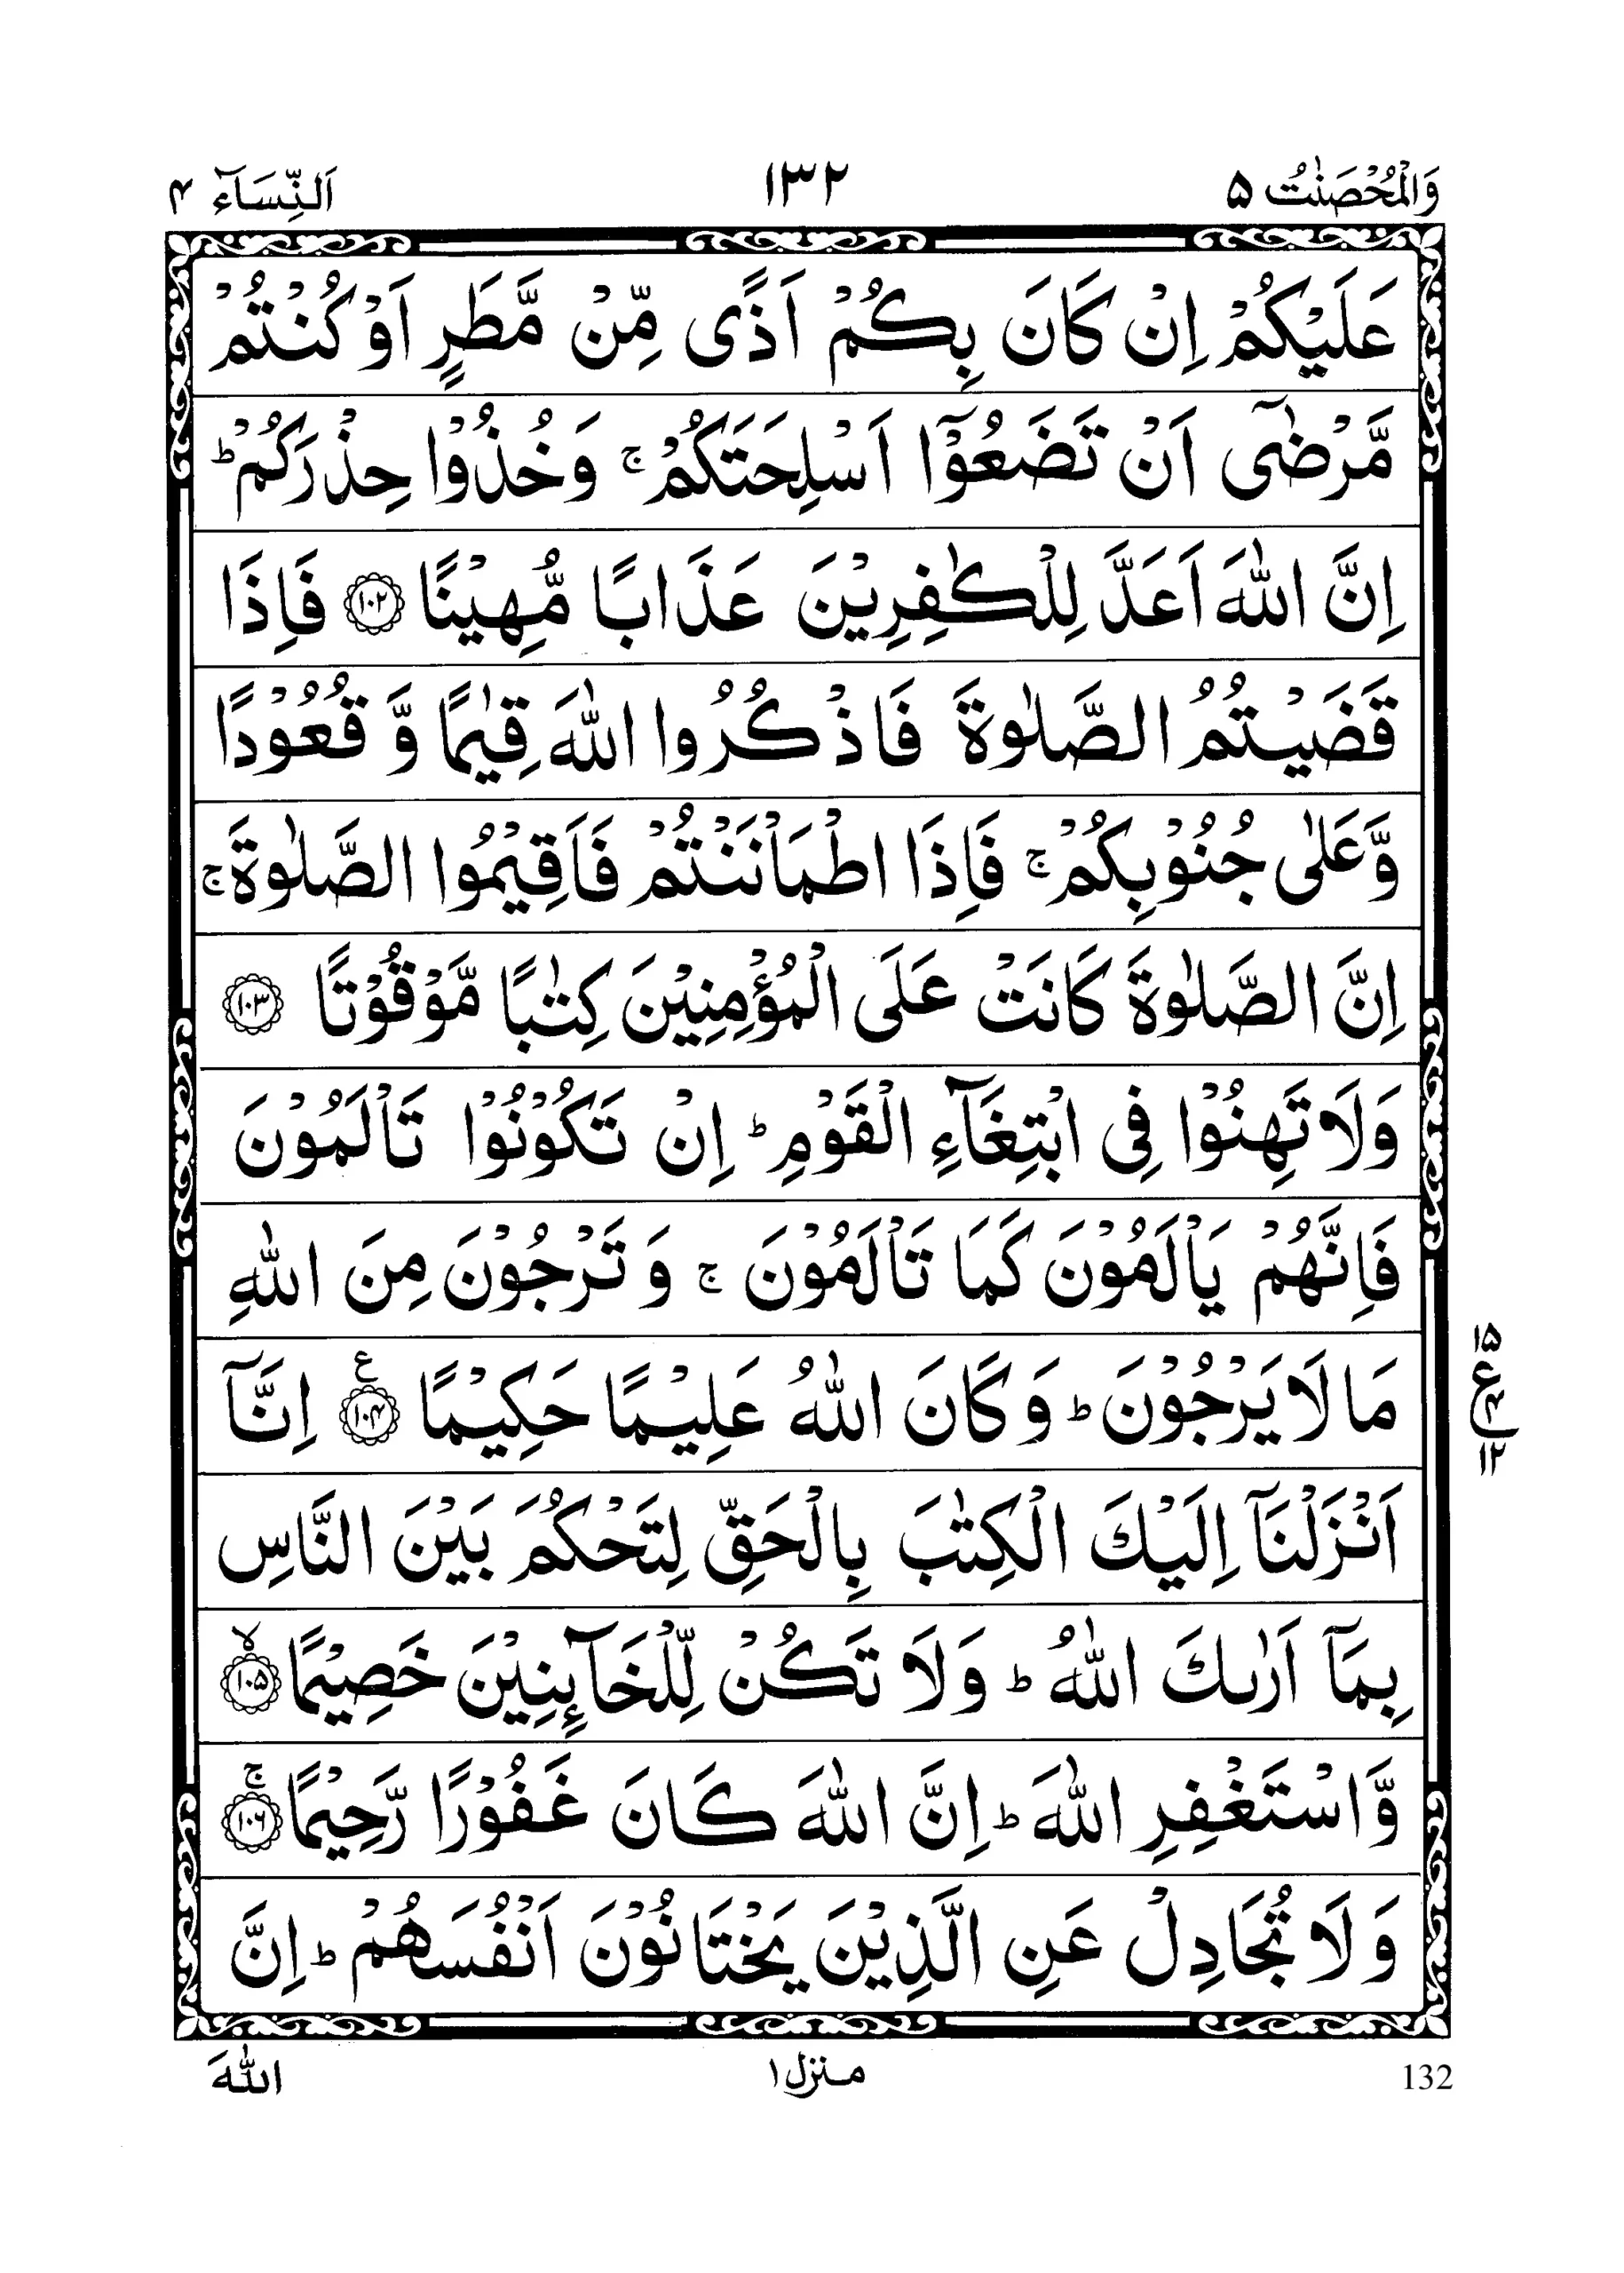 وَالْمُحْصَنٰتُ ۵ ۱۳۲ اَلنِّسَآء ۴
عَلَيْكُمْ اِنْ كَانَ بِكُمْ اَذًى مِّنْ مَّطَرٍ اَوْ كُنْتُمْ
مَّرْضٰٓى اَنْ تَضَعُوْٓا اَسْلِحَتَكُمْ ۚ وَخُذُوْا حِذْرَكُمْ ؕ
اِنَّ اللّٰهَ اَعَدَّ لِلْكٰفِرِيْنَ عَذَابًا مُّهِيْنًا ۝۱۰۲ فَاِذَا
قَضَيْتُمُ الصَّلٰوةَ فَاذْكُرُوا اللّٰهَ قِيٰمًا وَّ قُعُوْدًا
وَّعَلٰى جُنُوْبِكُمْ ۚ فَاِذَا اطْمَاْنَنْتُمْ فَاَقِيْمُوا الصَّلٰوةَ ۚ
اِنَّ الصَّلٰوةَ كَانَتْ عَلَى الْمُؤْمِنِيْنَ كِتٰبًا مَّوْقُوْتًا ۝۱۰۳
وَلَا تَهِنُوْا فِى ابْتِغَآءِ الْقَوْمِ ؕ اِنْ تَكُوْنُوْا تَاْلَمُوْنَ
فَاِنَّهُمْ يَاْلَمُوْنَ كَمَا تَاْلَمُوْنَ ۚ وَ تَرْجُوْنَ مِنَ اللّٰهِ
مَا لَا يَرْجُوْنَ ؕ وَ كَانَ اللّٰهُ عَلِيْمًا حَكِيْمًا ۝۱۰۴ ع اِنَّآ
۱۵ ع ۴ ۱۲
اَنْزَلْنَآ اِلَيْكَ الْكِتٰبَ بِالْحَقِّ لِتَحْكُمَ بَيْنَ النَّاسِ
بِمَآ اَرٰىكَ اللّٰهُ ؕ وَلَا تَكُنْ لِّلْخَآئِنِيْنَ خَصِيْمًا ۝۱۰۵ ۙ
وَّاسْتَغْفِرِ اللّٰهَ ؕ اِنَّ اللّٰهَ كَانَ غَفُوْرًا رَّحِيْمًا ۝۱۰۶ ۚ
وَلَا تُجَادِلْ عَنِ الَّذِيْنَ يَخْتَانُوْنَ اَنْفُسَهُمْ ؕ اِنَّ
132 منزل ۱ اللّٰهَ